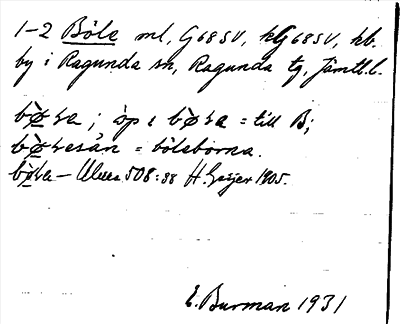 1-2 Böle ml, G68SV, kG68SV, kb.
by i Ragunda sn, Ragunda tg, Jämtl.l.
bø̀ɽa; òp i bø̀ɽa = till B;
bø̀ɽesån = böleborna.
bø̀ɽa - Ulma 508:88 H. Geijer 1905.
E. Burman 1931